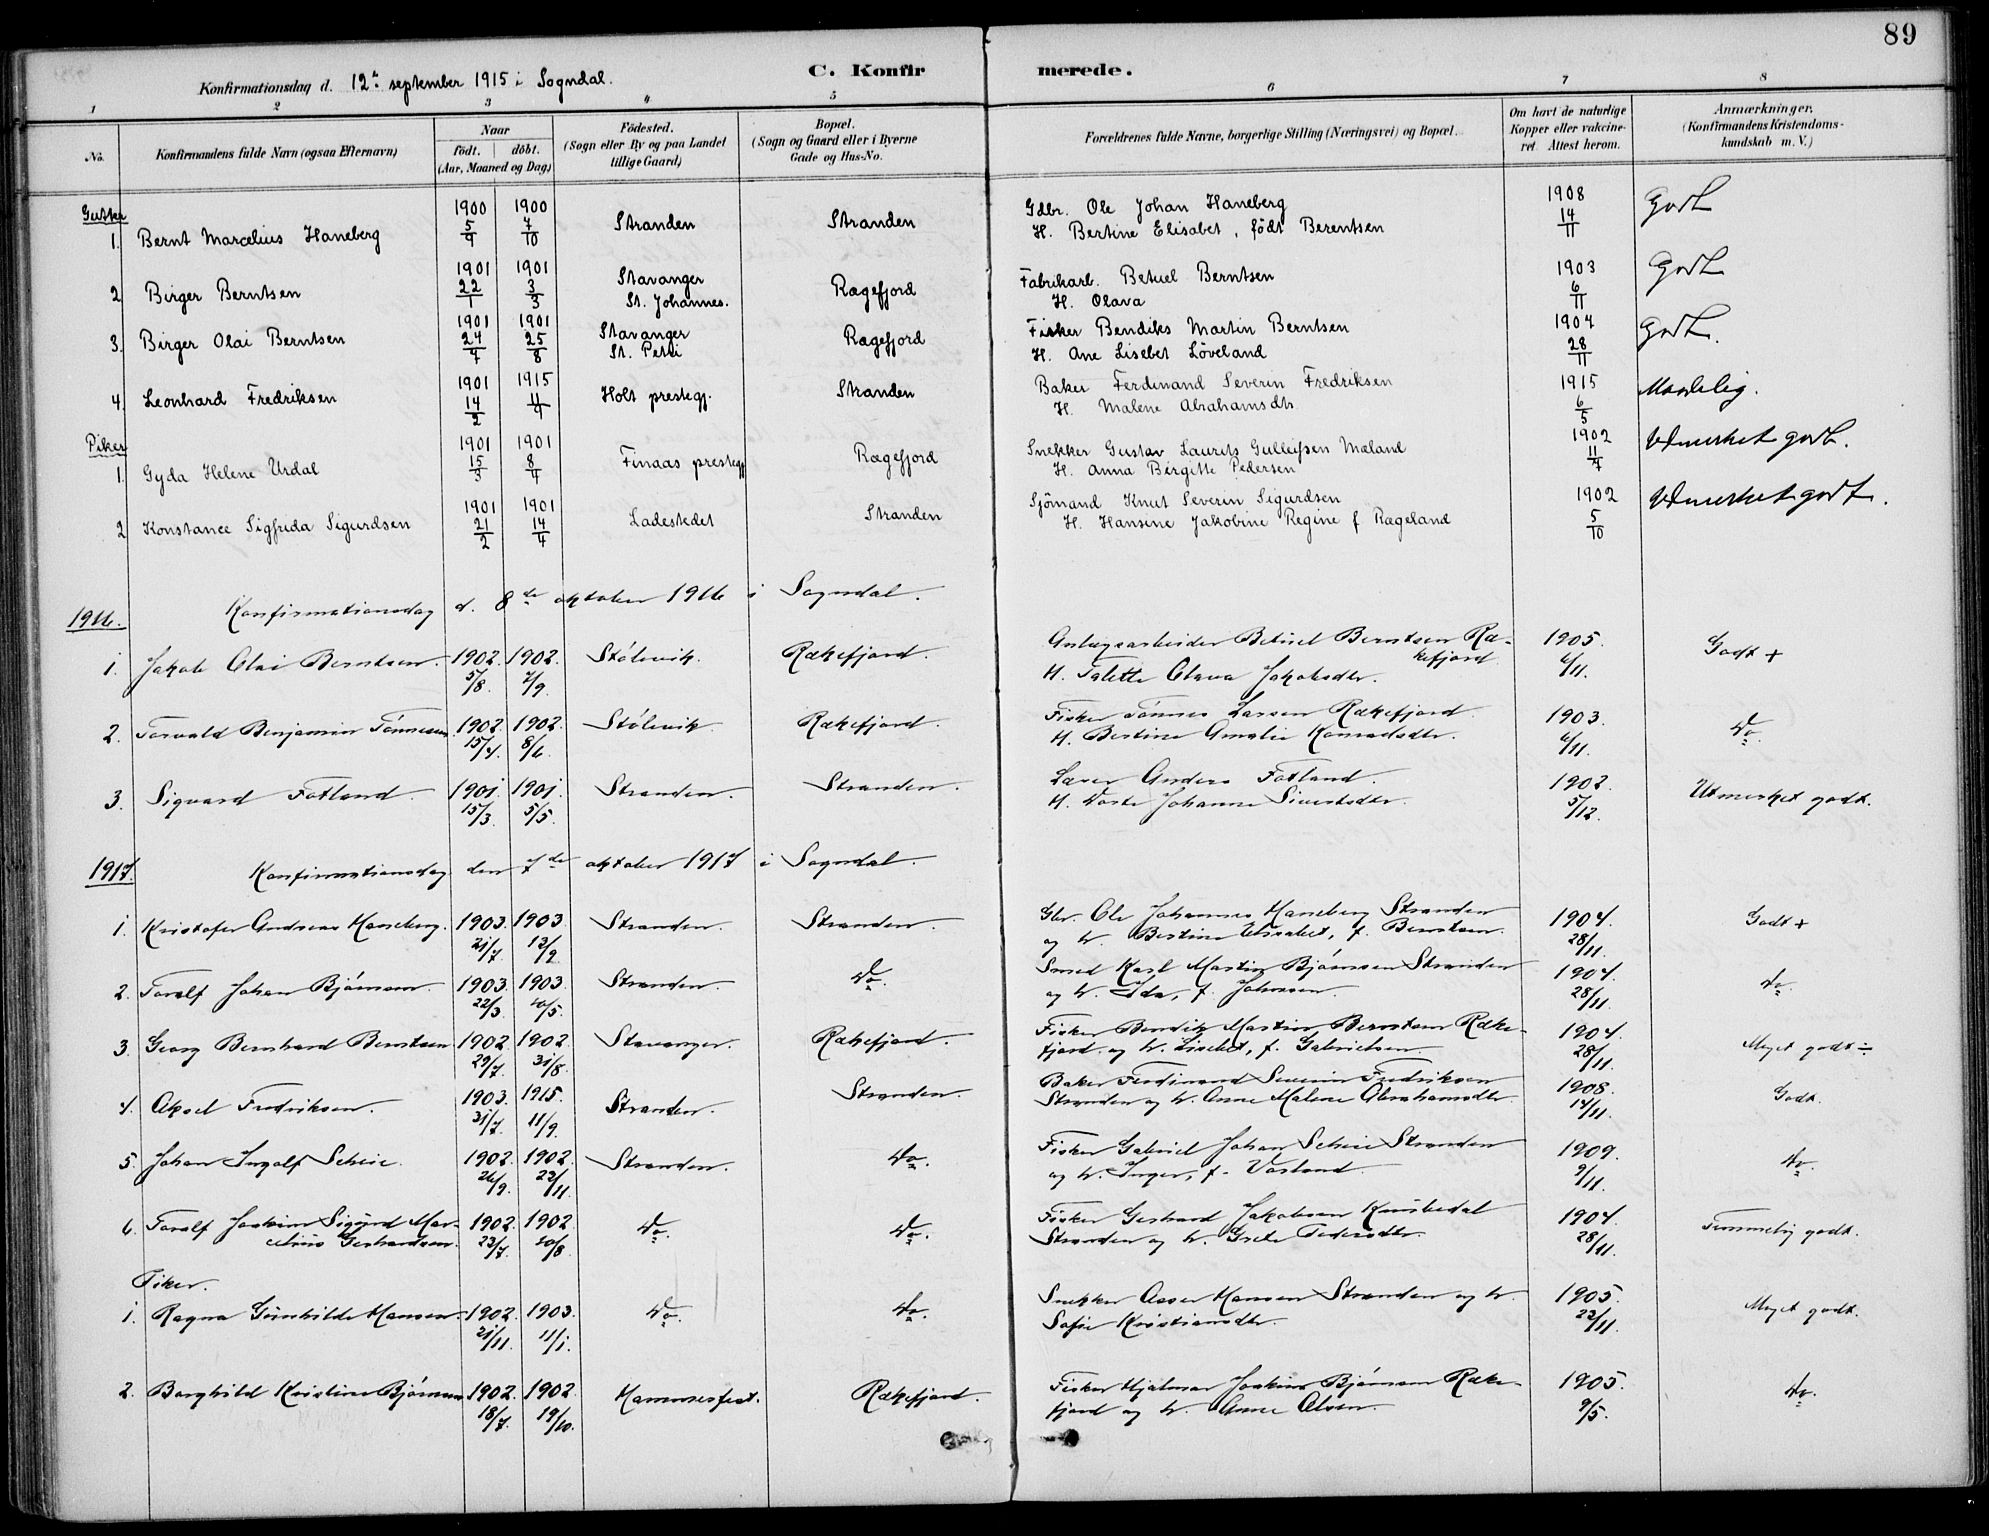 89
C. Konfirmerede.
Konfirmationsdag d. 12te september 1915 i Sogndal.
1 2 3 4 5 6 7 8
No.
Konfirmandens fulde Navn (ogsaa Efternavn)
Naar
födt. döbt.
(Aar, Maaned og Dag)
Födested.
(Sogn eller By og paa Landet
tillige Gaard)
Bopæl.
(Sogn og Gaard eller i Byerne
Gade og Hus-No.
Forældrenes fulde Navne, borgerlige Stilling (Næringsvei) og Bopæl.
Om havt de naturlige
Kopper eller vakcine-
ret. Attest herom.
Anmærkninger.
(Konfirmandens Kristendoms-
kundskab m. V.)
Gutter
1. Bernt Marcelius Haneberg 1900 5/9 1900 7/10 Stranden Stranden Gdbr. Ole Johan Haneberg 1908 14/11 Godt
H. Bertine Elisabet, födt Berentsen
2 Birger Berntsen 1901 22/1 1901 3/3 Stavanger St. Johannes. Rægefjord Fabrikarb. Betuel Berntsen 1903 6/11 Godt
H. Olava
3. Birger Olai Berntsen 1901 24/4 1901 25/8 Stavanger St. Petri Rægefjord Fisker Bendiks Martin Berntsen 1904 28/11 Godt.
H. Ane Lisebet Löveland
4. Leonhard Fredriksen 1901 14/2 1915 11/9 Holt prestegj. Stranden Baker Ferdinand Severin Fredriksen 1915 6/5 Maadelig.
H. Malene Abrahamsdtr.
Piker
1. Gyda Helene Urdal 1901 15/3 1901 8/4 Finaas prestegj Rægefjord Snekker Gustav Laurits Gulleifsen Mæland 1902 11/7 Udmerket godt.
H. Anna Birgitte Pedersen
2 Konstance Sigfrida Sigurdsen 1901 21/2 1901 14/4 Ladestedet Stranden Sjömand Knut Severin Sigurdsen 1902 5/10 Udmerket godt.
H. Hansine Jakobine Regine f Rægeland
1916. Konfirmationsdag d. 8de oktober 1916 i Sogndal.
1. Jakob Olai Berntsen. 1902. 5/8. 1902. 7/9. Stølsvik. Rækefjord. Anlægsarbeider Betuel Berntsen Ræ-
kefjord 1905. 6/11. Godt +
H. Talette Olava Jakobsdtr.
2. Torvald Benjamin Tönnesen 1902. 15/4. 1902. 8/6. Stølsvik Rækefjord. Fisker Tönnes Larsen Rækefjord 1903. 6/11. Do.
H. Bertine Amalie Konradsdtr.
3. Sigvard Fotland. 1901. 15/3. 1901. 5/5. Stranden. Stranden. Lærer Anders Fotland. 1902. 5/12. Utmerket godt.
H. Dorte Johanne Sivertsdtr.
1917. Konfirmationsdag den 7de oktober 1917 i Sogndal.
1. Kristofer Andreas Haneberg. 1903. 21/7. 1903. 13/9. Stranden. Stranden. Gbr. Ole Johannes Haneberg Stranden 1904. 28/11. Godt +
og h. Bertine Elisabet, f. Berntsen.
2. Toralf Johan Bjørnsen. 1903. 22/3. 1903. 20/5. Stranden. Do. Smed Karl Martin Bjørnsen Stranden 1904. 28/11. do.
og h. Ida, f. Johnsen.
3. Georg Bernhard Berntsen 1902. 29/7. 1902 31/8. Stavanger. Rækefjord. Fisker Bendik Martin Berntsen Ræke- 1904. 28/11. Meget godt ÷
fjord og h. Lisebet, f. Gabrielsen
4. Aksel Fredriksen. 1903. 31/7. 1915. 11/9. Stranden. Stranden. Baker Ferdinand Severin Fredriksen 1908. 14/11. Godt.
Stranden og h. Anne Malene Abrahamsdtr.
5. Johan Ingolf Scheie. 1902. 26/9. 1902. 23/11. Stranden. Do. Fisker Gabriel Johan Scheie Stranden 1909. 9/11. do.
og h. Inger, f.
6. Toralf Joakim Sigurd Mar- 1902. 23/7. 1902. 20/8. Do. Do. Fisker Gerhard Jakobsen 1904. 28/11. Temmelig godt.
celius Gerhardsen. Stranden og h. Grete Pedersdtr.
Piker.
1. Ragna Gunhilde Hansen. 1902. 21/11. 1903. 11/1. Do. Do. Snekker Asser Hansen Stranden og h. 1905. 22/11. Meget godt.
Sofie Kristiansdtr.
2. Borghild Kristine Bjørnsen 1902. 18/7. 1902. 19/10. Hammerfest. Rækefjord. Fisker Hjalmar Joakim Bjørnsen Ræke- 1905. 9/5. do.
fjord og h. Anne Olsen.